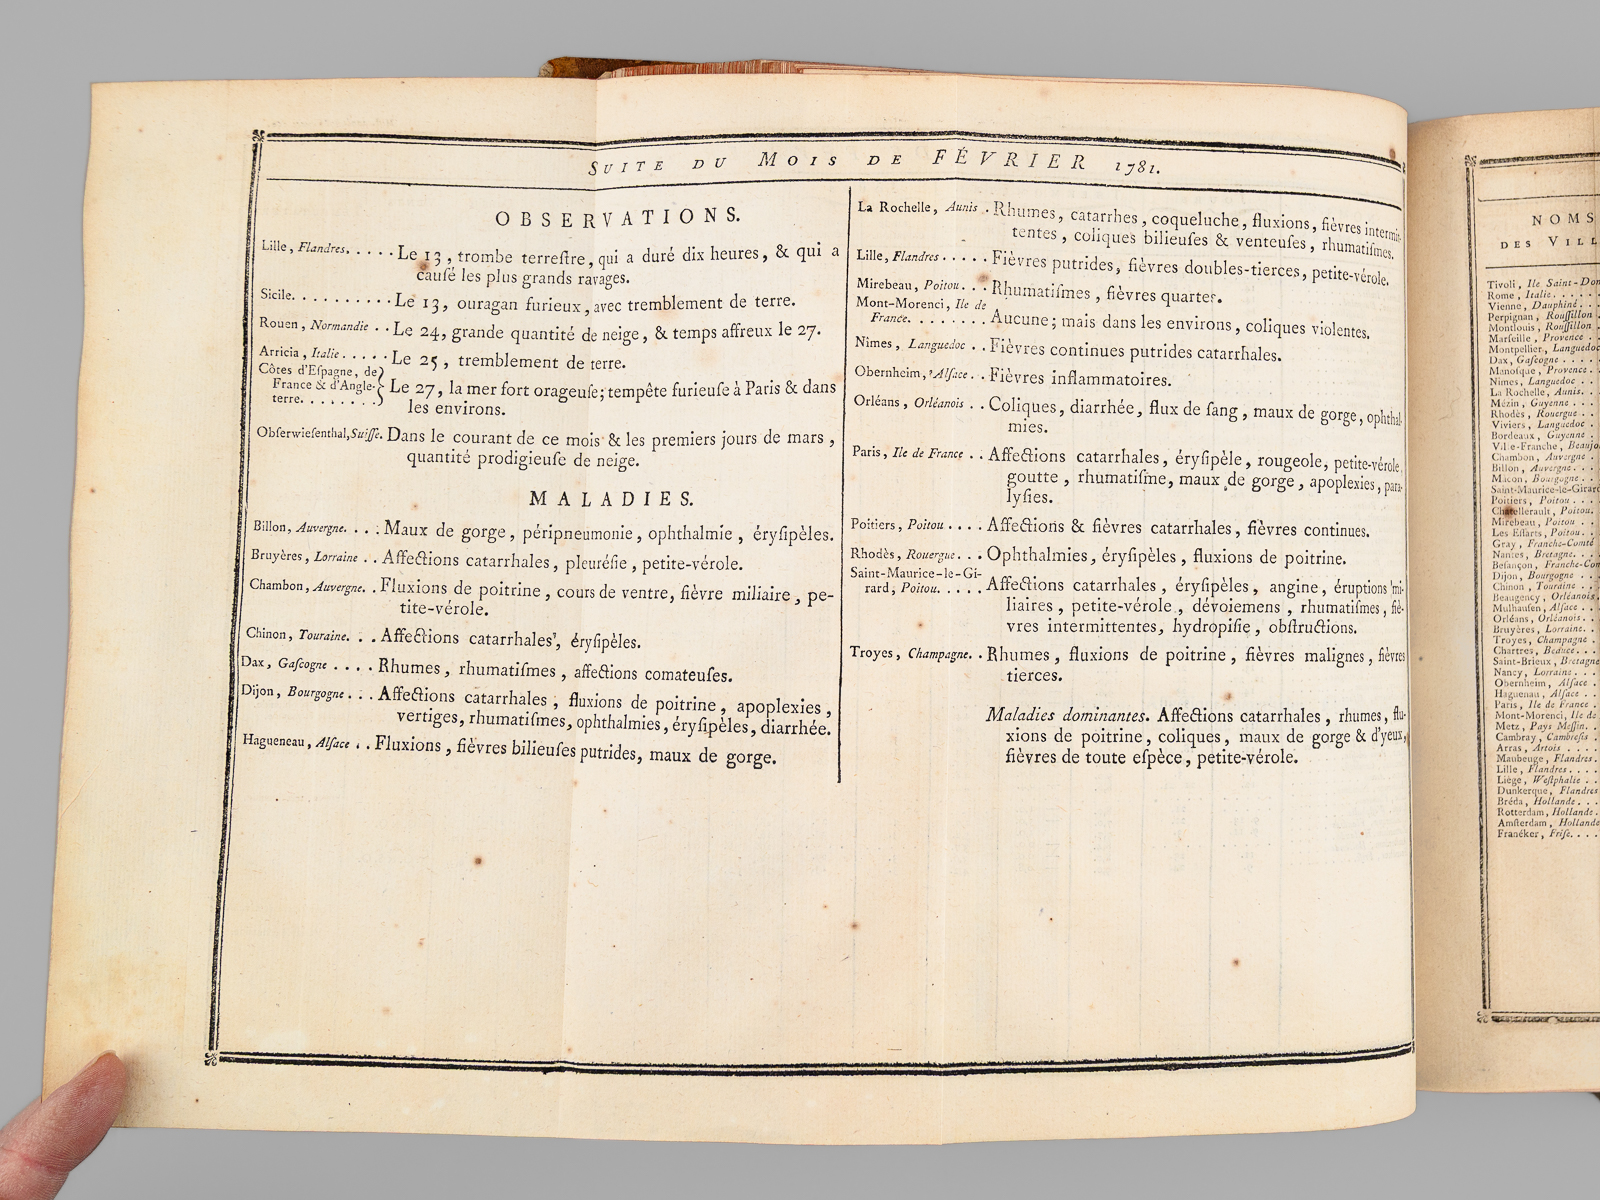 SUITE DU MOIS DE FÉVRIER 1781.
OBSERVATIONS.
Lille, Flandres. . . . . Le 13, trombe terreſtre, qui a duré dix heures, & qui a
cauſé les plus grands ravages.
Sicile. . . . . . . . . . Le 13, ouragan furieux, avec tremblement de terre.
Rouen, Normandie . . Le 24, grande quantité de neige, & temps affreux le 27.
Arricia, Italie . . . . . Le 25, tremblement de terre.
Côtes d'Eſpagne, de
France & d'Angle- Le 27, la mer fort orageuſe; tempête furieuſe à Paris & dans
terre. . . . . . . . les environs.
Obſerwieſenthal, Suiſſe. Dans le courant de ce mois & les premiers jours de mars,
quantité prodigieuſe de neige.
MALADIES.
Billon, Auvergne. . . . Maux de gorge, péripneumonie, ophthalmie, éryſipèles.
Bruyères, Lorraine . . Affections catarrhales, pleuréſie, petite-vérole.
Chambon, Auvergne. . Fluxions de poitrine, cours de ventre, fièvre miliaire, pe-
tite-vérole.
Chinon, Touraine. . . Affections catarrhales, éryſipèles.
Dax, Gaſcogne . . . . Rhumes, rhumatiſmes, affections comateuſes.
Dijon, Bourgogne . . . Affections catarrhales, fluxions de poitrine, apoplexies,
vertiges, rhumatiſmes, ophthalmies, éryſipèles, diarrhée.
Hagueneau, Alſace . . Fluxions, fièvres bilieuſes putrides, maux de gorge.
La Rochelle, Aunis . . Rhumes, catarrhes, coqueluche, fluxions, fièvres intermit-
tentes, coliques bilieuſes & venteuſes, rhumatiſmes.
Lille, Flandres . . . . . Fièvres putrides, fièvres doubles-tierces, petite-vérole.
Mirebeau, Poitou. . . Rhumatiſmes, fièvres quartes.
Mont-Morenci, Ile de
France. . . . . . . . Aucune; mais dans les environs, coliques violentes.
Nimes, Languedoc . . Fièvres continues putrides catarrhales.
Obernheim, Alſace. . Fièvres inflammatoires.
Orléans, Orléanois . . Coliques, diarrhée, flux de ſang, maux de gorge, ophthal-
mies.
Paris, Ile de France . . Affections catarrhales, éryſipèle, rougeole, petite-vérole,
goutte, rhumatiſme, maux de gorge, apoplexies, para-
lyſies.
Poitiers, Poitou . . . . Affections & fièvres catarrhales, fièvres continues.
Rhodès, Rouergue. . . Ophthalmies, éryſipèles, fluxions de poitrine.
Saint-Maurice-le-Gi-
rard, Poitou. . . . . Affections catarrhales, éryſipèles, angine, éruptions mi-
liaires, petite-vérole, dévoiemens, rhumatiſmes, fiè-
vres intermittentes, hydropiſie, obſtructions.
Troyes, Champagne. . Rhumes, fluxions de poitrine, fièvres malignes, fièvres
tierces.
Maladies dominantes. Affections catarrhales, rhumes, flu-
xions de poitrine, coliques, maux de gorge & d'yeux,
fièvres de toute eſpèce, petite-vérole.
NOMS
DES VILL
Tivoli, Ile Saint-Dom
Rome, Italie. . . . .
Vienne, Dauphiné. . .
Perpignan, Rouſſillon .
Montlouis, Rouſſillon .
Marſeille, Provence . .
Montpellier, Languedoc
Dax, Gaſcogne . . . .
Manoſque, Provence. .
Nimes, Languedoc . .
La Rochelle, Aunis. .
Mézin, Guyenne . . .
Rhodès, Rouergue. . .
Viviers, Languedoc .
Bordeaux, Guyenne . .
Ville-Franche, Beaujo
Chambon, Auvergne . .
Billon, Auvergne. . .
Macon, Bourgogne . .
Saint-Maurice-le-Girard
Poitiers, Poitou . . . .
Chatellerault, Poitou.
Mirebeau, Poitou . . .
Les Eſſarts, Poitou. . .
Gray, Franche-Comté
Nantes, Bretagne. . .
Beſançon, Franche-Com
Dijon, Bourgogne . . .
Chinon, Touraine . . .
Beaugency, Orléanois.
Mulhauſen, Alſace . .
Orléans, Orléanois. . .
Bruyères, Lorraine. .
Troyes, Champagne . .
Chartres, Beauce. . .
Saint-Brieux, Bretagne
Nancy, Lorraine . . .
Obernheim, Alſace . .
Haguenau, Alſace . .
Paris, Ile de France . .
Mont-Morenci, Ile de
Metz, Pays Meſſin. . .
Cambray, Cambreſis .
Arras, Artois . . . .
Maubeuge, Flandres.
Lille, Flandres. . . .
Liège, Weſtphalie . . .
Dunkerque, Flandres
Bréda, Hollande. . .
Rotterdam, Hollande .
Amſterdam, Hollande
Franéker, Friſe. . . .